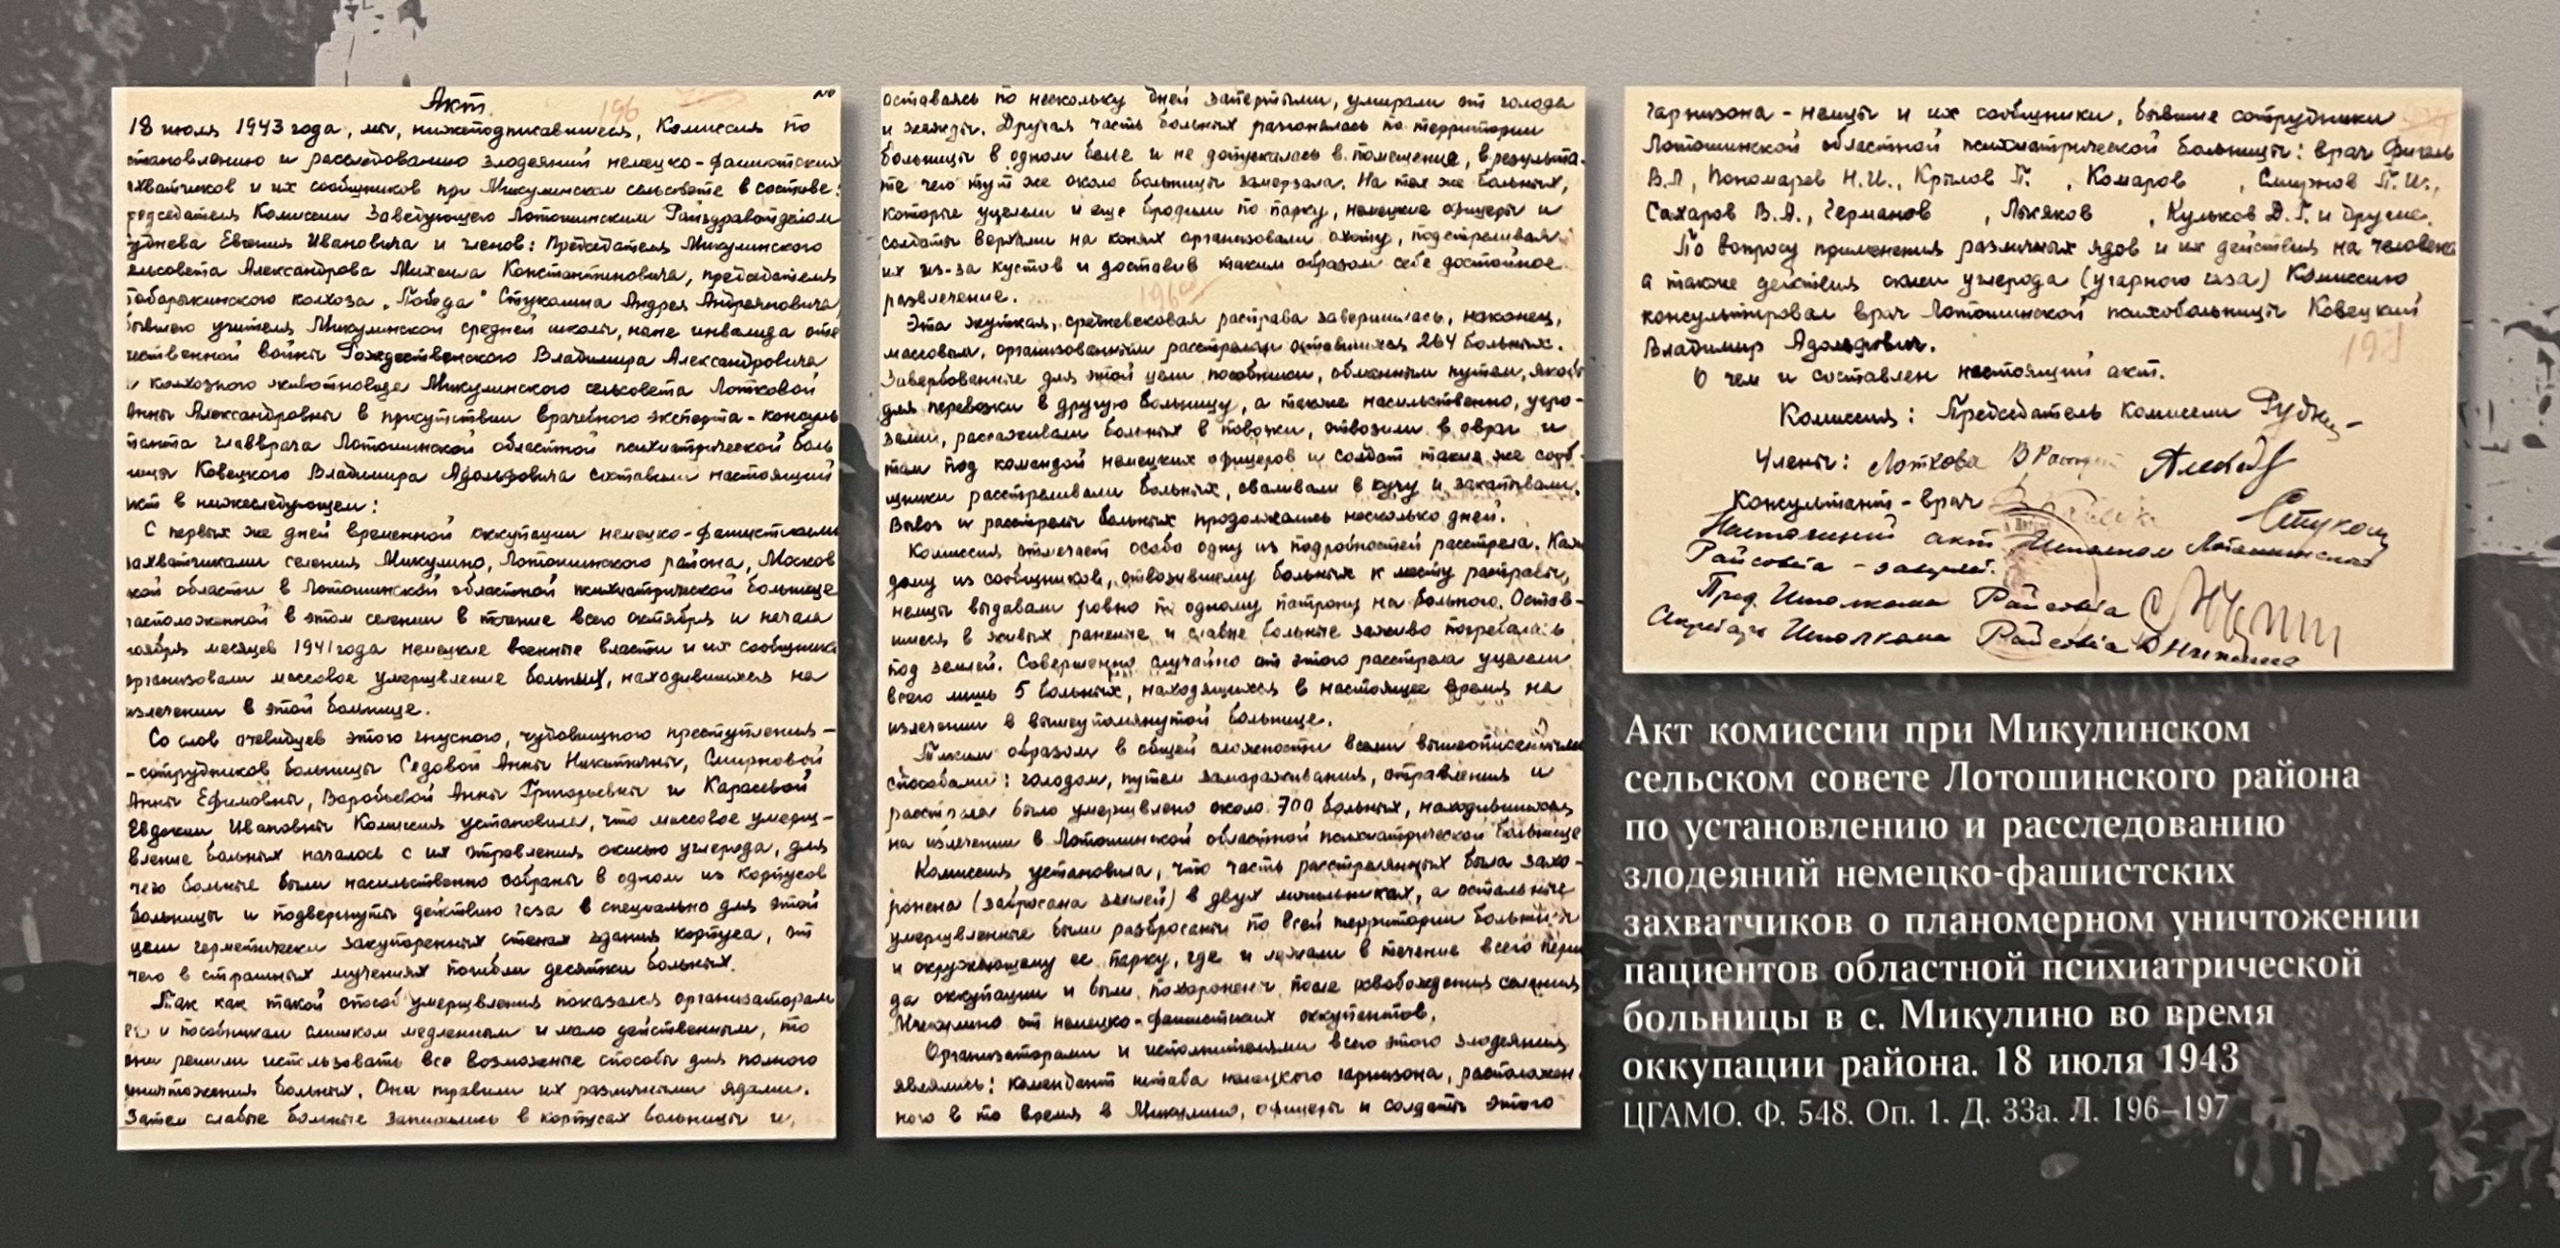 Акт.
196
18 июля 1943 года, мы, нижеподписавшиеся, Комиссия по
становлению и расследованию злодеяний немецко-фашистских
ахватчиков и их сообщников при Микулинском сельсовете в составе:
редседателя Комиссии Заведующего Лотошинским Райздравотделом
уднева Евгения Ивановича и членов: Председателя Микулинского
ельсовета Александрова Михаила Константиновича, председателя
колхоза „Победа" Стукалина Андрея Андреяновича,
бывшего учителя Микулинской средней школы, ныне инвалида оте
чественной войны Рождественского Владимира Александровича
и колхозного животновода Микулинского сельсовета Лотковой
Анны Александровны в присутствии врачебного эксперта-консуль
танта главврача Лотошинской областной психиатрической боль
ницы Ковецкого Владимира Адольфовича составили настоящий
акт в нижеследующем:
С первых же дней временной оккупации немецко-фашистскими
захватчиками селения Микулино, Лотошинского района, Москов
кой области в Лотошинской областной психиатрической больнице
расположенной в этом селении в течение всего октября и начала
ноября месяцев 1941 года немецкие военные власти и их сообщники
организовали массовое умерщвление больных, находившихся на
излечении в этой больнице.
Со слов очевидцев этого гнусного, чудовищного преступления-
-сотрудников больницы Седовой Анны Никитичны, Смирновой
Анны Ефимовны, Воробьевой Анны Григорьевны и Карасевой
Евдокии Ивановны Комиссия установила, что массовое умерщ-
вление больных началось с их отравления окисью углерода, для
чего больные были насильственно собраны в одном из корпусов
больницы и подвергнуты действию газа в специально для этой
цели герметически закупоренных стенах здания корпуса, от
чего в страшных мучениях погибли десятки больных.
Так как такой способ умерщвления показался организаторам
и пособникам слишком медленным и мало действенным, то
они решили использовать все возможные способы для полного
уничтожения больных. Они травили их различными ядами.
Затем слабые больные запирались в корпусах больницы и,
оставаясь по нескольку дней запертыми, умирали от голода
и жажды. Другая часть больных разгонялась по территории
больницы в одном белье и не допускалась в помещение, в результа-
те чего тут же около больницы замерзала. На тех же больных,
которые уцелели и еще бродили по парку, немецкие офицеры и
солдаты верхами на конях организовали охоту, подстреливая
их из-за кустов и доставив таким образом себе достойное
развлечение.
Эта жуткая, средневековая расправа завершилась, наконец,
массовым, организованным расстрелом оставшихся 264 больных.
Завербованные для этой цели пособники, обманным путем, якобы
для перевозки в другую больницу, а также насильственно, угро-
зами, рассаживали больных в повозки, отвозили в овраг и
там под командой немецких офицеров и солдат такие же сооб-
щники расстреливали больных, сваливали в кучу и закапывали.
Вывоз и расстрелы больных продолжались несколько дней.
Комиссия отмечает особо одну из подробностей расстрела. Каж
дому из сообщников, отвозившему больных к месту расправы,
немцы выдавали ровно по одному патрону на больного. Остав-
шиеся в живых раненые и слабые больные заживо погребались
под землей. Совершенно случайно от этого расстрела уцелели
всего лишь 5 больных, находящихся в настоящее время на
излечении в вышеупомянутой больнице.
Таким образом в общей сложности всеми вышеописанными
способами: голодом, путем замораживания, отравления и
расстрела было умерщвлено около 700 больных, находившихся
на излечении в Лотошинской областной психиатрической больнице
Комиссия установила, что часть расстрелянных была захо-
ронена (забросана землей) в двух могильниках, а остальные
умерщвленные были разбросаны по всей территории больницы
и окружающему ее парку, где и лежали в течение всего перио
да оккупации и были похоронены после освобождения селения
Микулино от немецко-фашистских оккупантов.
Организаторами и исполнителями всего этого злодеяния
явились: комендант штаба немецкого гарнизона, расположен
ного в то время в Микулино, офицеры и солдаты этого
гарнизона - немцы и их сообщники, бывшие сотрудники
Лотошинской областной психиатрической больницы: врач
В.Л, Пономарев Н.И., Крылов П. , Комаров , Смирнов П.И.,
Сахаров В.А., Германов , , Кульков Д.Г. и другие.
По вопросу применения различных ядов и их действия на человека
а также действия окиси углерода (угарного газа) Комиссию
консультировал врач Лотошинской психобольницы Ковецкий
Владимир Адольфович.
197
О чем и составлен настоящий акт.
Комиссия: Председатель комиссии
Члены: Лоткова
Консультант-врач
Настоящий акт Исполком Лотошинского
Райсовета - заверяет.
Пред. Исполкома Райсовета
Секретарь Исполкома Райсовета
Акт комиссии при Микулинском
сельском совете Лотошинского района
по установлению и расследованию
злодеяний немецко-фашистских
захватчиков о планомерном уничтожении
пациентов областной психиатрической
больницы в с. Микулино во время
оккупации района. 18 июля 1943
ЦГАМО. Ф. 548. Оп. 1. Д. 33а. Л. 196–197